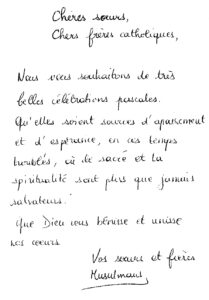 Chères sœurs,
Chers frères catholiques,
Nous vous souhaitons de très
belles célébrations pascales.
Qu'elles soient sources d'apaisement
et d'espérance, en ces temps
troublés, où le sacré et la
spiritualité sont plus que jamais
salvateurs.
Que Dieu vous bénisse et unisse
nos cœurs.
Vos sœurs et frères
Musulmans